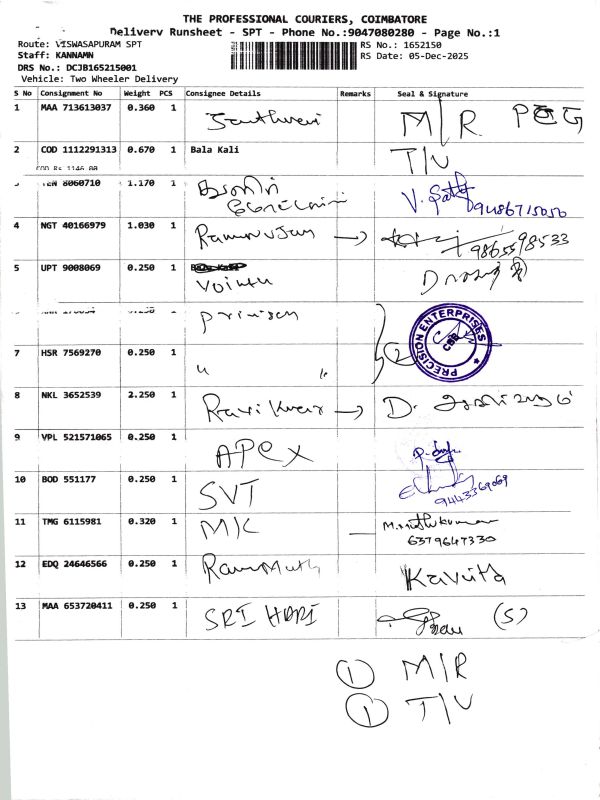 THE PROFESSIONAL COURIERS, COIMBATORE
Delivery Runsheet - SPT - Phone No.:9047080280 - Page No.:1
Route: VISWASAPURAM SPT
RS No.: 1652150
Staff: KANNAMN
RS Date: 05-Dec-2025
DRS No.: DCJB165215001
Vehicle: Two Wheeler Delivery
S No Consignment No Weight PCS Consignee Details Remarks Seal & Signature
1 MAA 713613037 0.360 1 M/R
2 COD 1112291313 0.670 1 Bala Kali T/V
COD Rs 1146.00
TEN 8060710 1.170 1 9486715050
4 NGT 40166979 1.030 1 → 9865598533
5 UPT 9008069 0.250 1
PRECISION ENTERPRISES CBE
7 HSR 7569270 0.250 1 " "
8 NKL 3652539 2.250 1 Ravi Kumar → D.
9 VPL 521571065 0.250 1 APEX
10 BOD 551177 0.250 1 SVT 9443369069
11 TMG 6115981 0.320 1 M/C — M. Muthukumar
6379647330
12 EDQ 24646566 0.250 1 Kavitha
13 MAA 653720411 0.250 1 SRI HARI (S)
① M/R
① T/V